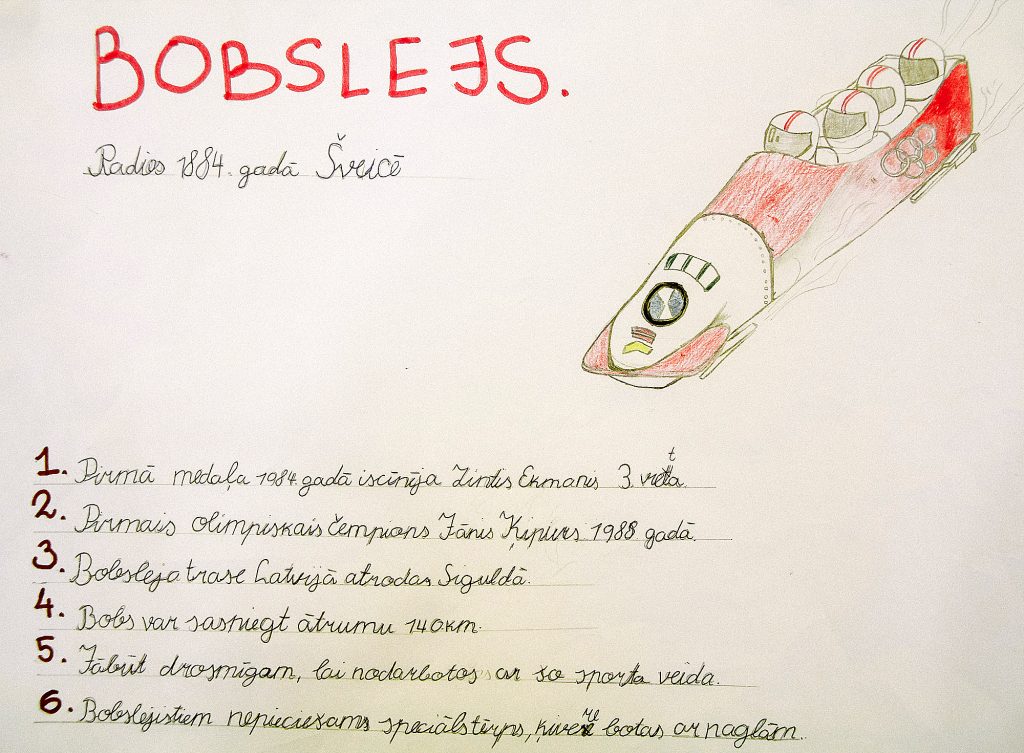 BOBSLEJS.
Radies 1884. gadā Šveicē
1. Pirmā medaļa 1984. gadā iscīnīja Zintis Ekmanis 3. vieta.
2. Pirmais olimpiskais čempions Jānis Ķipurs 1988 gadā.
3. Bobsleja trase Latvijā atrodas Siguldā.
4. Bobs var sasniegt ātrumu 140km.
5. Jābūt drosmīgam, lai nodarbotos ar šo sporta veida.
6. Bobslejistiem nepieciešams speciāls tērps, ķivere botas ar naglām.